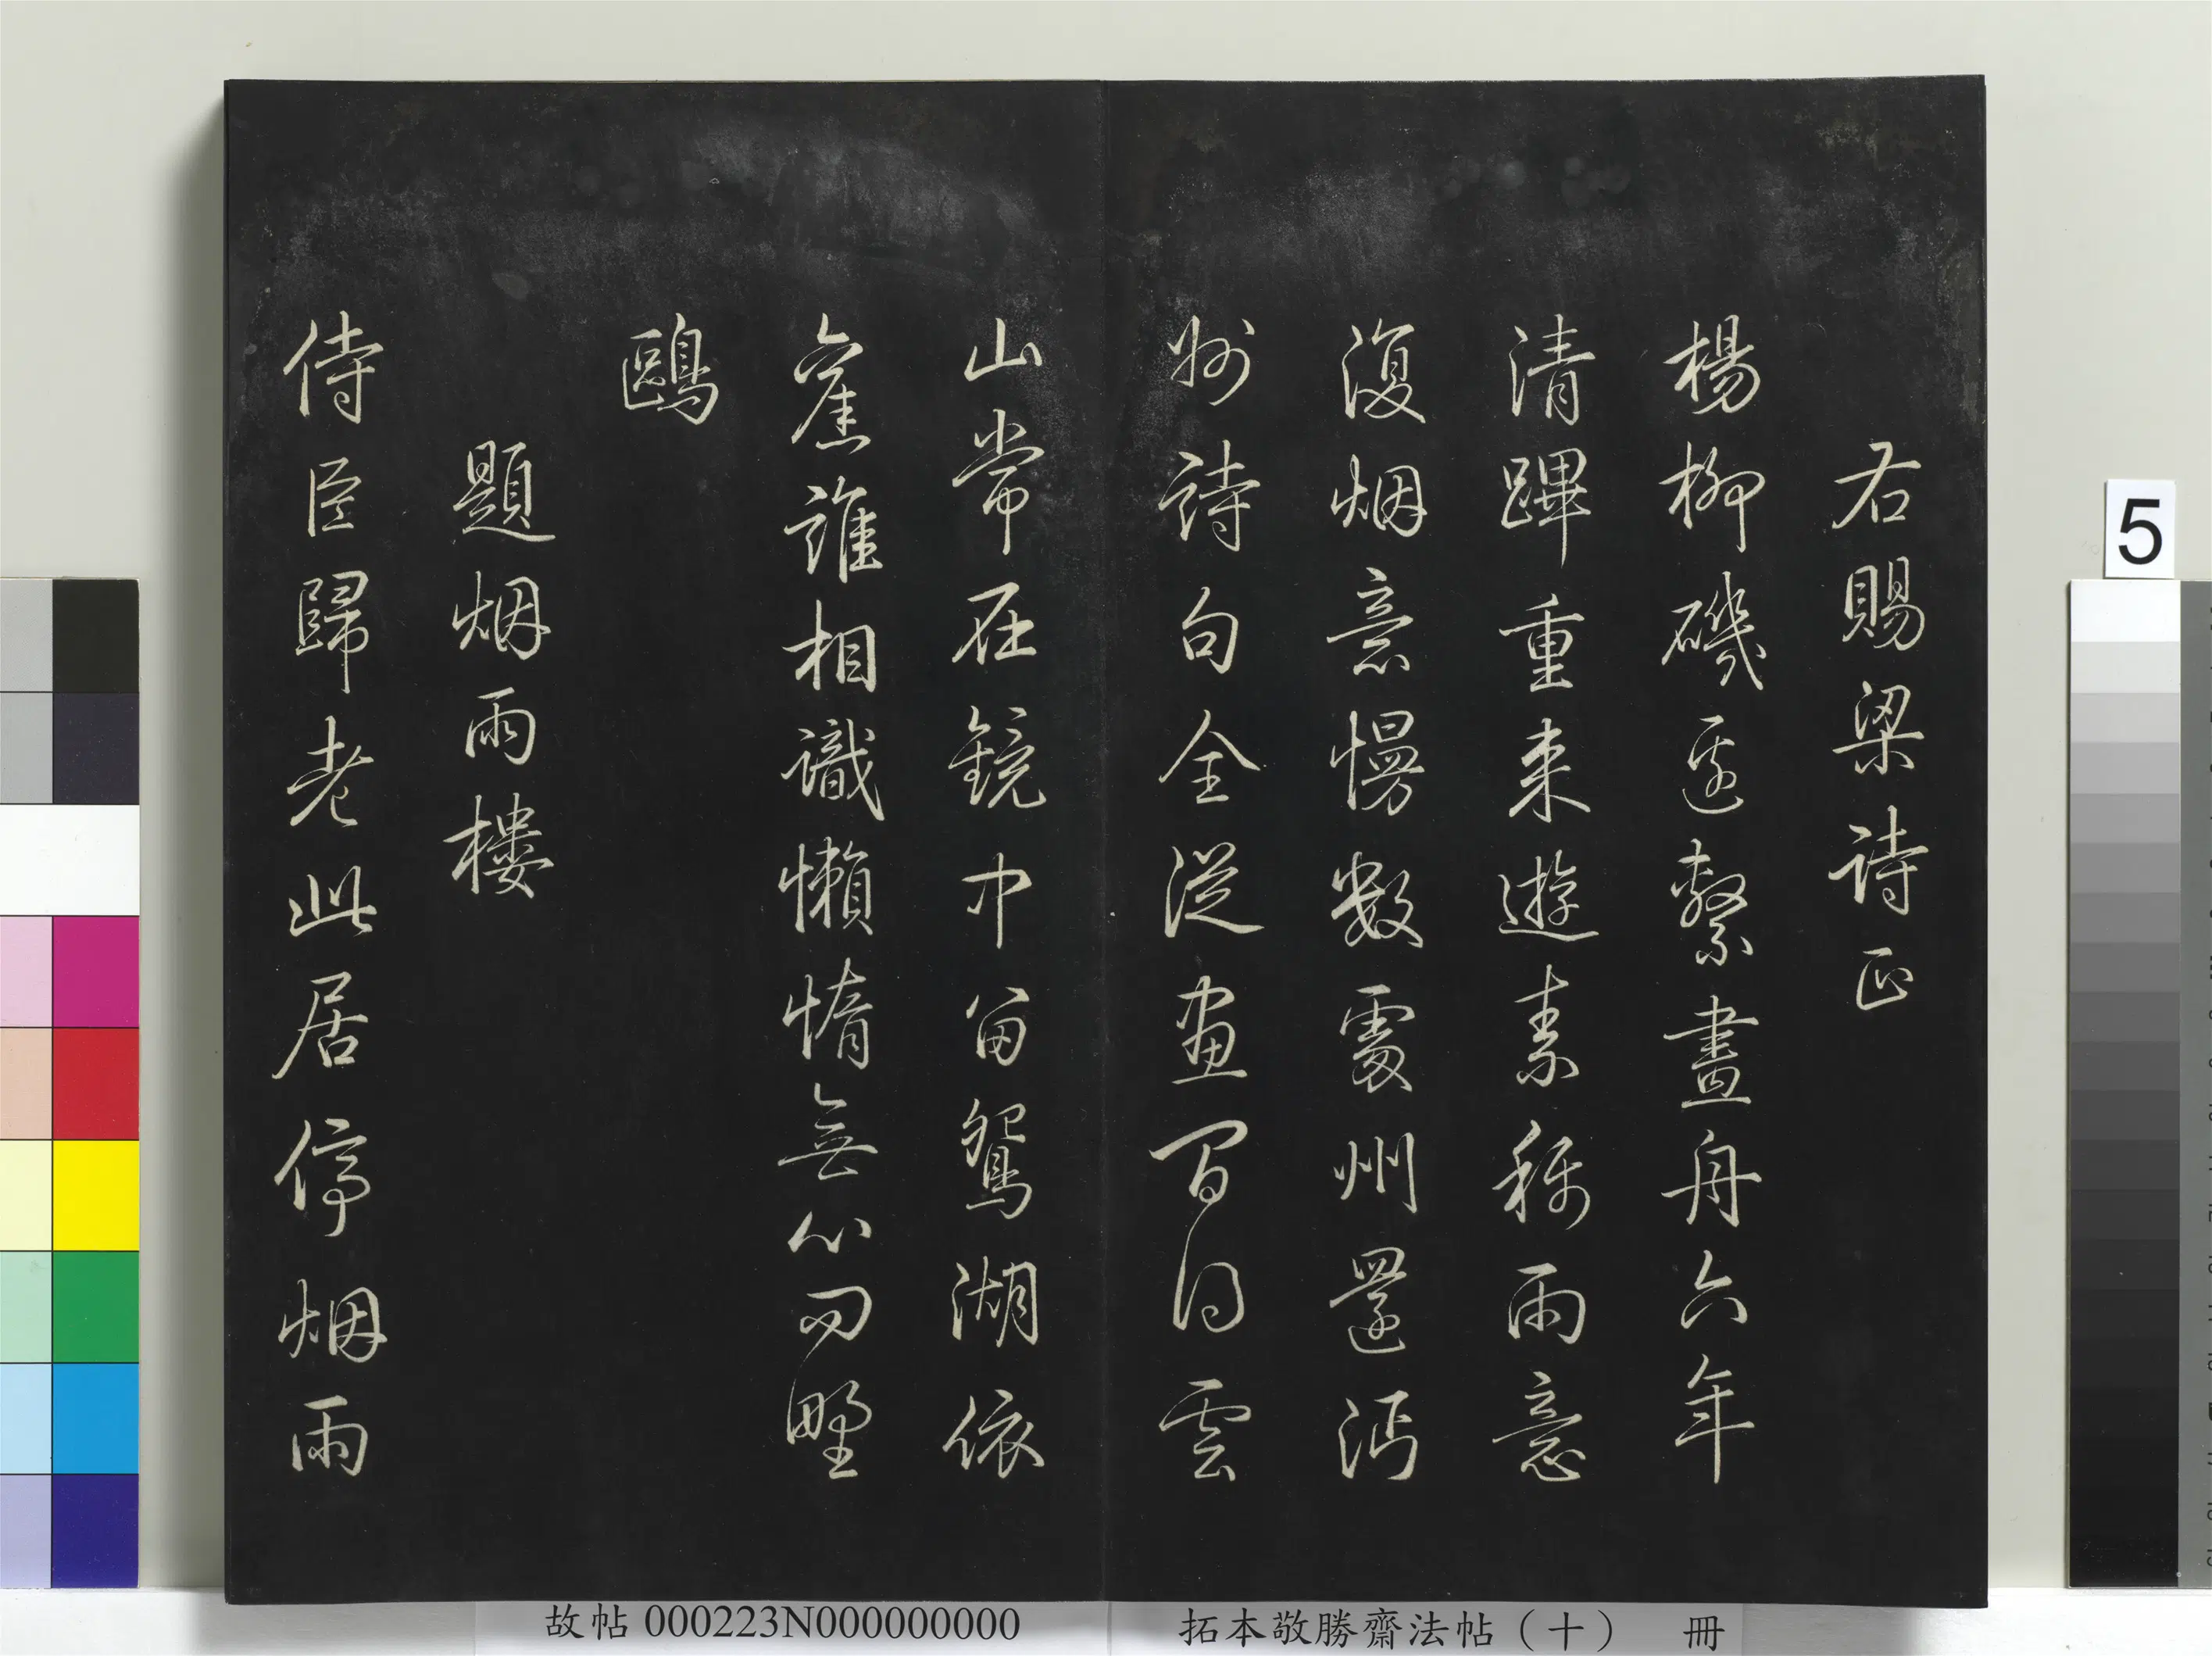 右賜梁詩正
楊柳磯邊繫畫舟六年
清蹕重来遊素稱雨意
復烟意慢數處州還沔
州詩句全從画間得雲
山常在鏡中留鴛湖依
舊誰相識懶惰無心野
鷗
題烟雨樓
侍臣歸老此居停烟雨
5
故帖 000223N000000000
拓本敬勝齋法帖（十） 冊